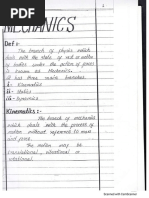 MECHANICS
Def :-
The branch of physics which
deals with the state of rest or motion
of bodies under the action of forces
is known as Mechanics.
It has three main branches.
i- Kinematics
ii- Statics
iii- Dynamics
Kinematics :-
The branch of mechanics
which deals with the process of
motion without reference to mass
and force.
The motion may be
translational, vibrational or
rotational.
Scanned with CamScanner